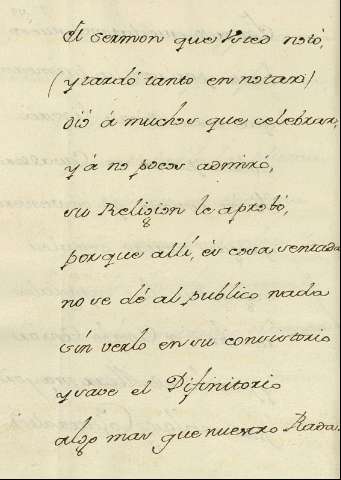 El sermon que Vsted notó,
(y tardó tanto en notar)
dió á muchos que celebrar,
y á no pocos admiró,
su Religion le aprobó,
porque allí, és cosa sentada
no se dé al publico nada
sin verlo en su consistorio
y save el Difinitorio
algo mas que nuestro Rada.